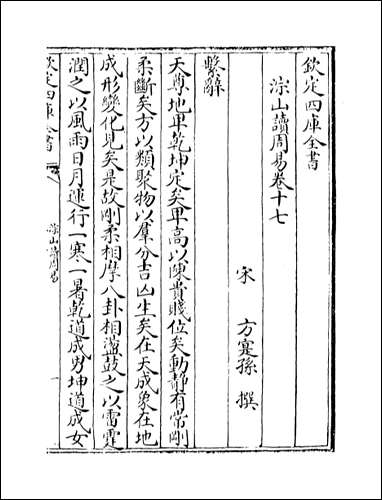 欽定四庫全書
淙山讀周易卷十七
宋 方寔孫 撰
繫辭
天尊地卑乾坤定矣卑高以陳貴賤位矣動靜有常剛
柔斷矣方以類聚物以羣分吉凶生矣在天成象在地
成形變化見矣是故剛柔相摩八卦相盪鼓之以雷霆
潤之以風雨日月運行一寒一暑乾道成男坤道成女
欽定四庫全書
淙山讀周易
一